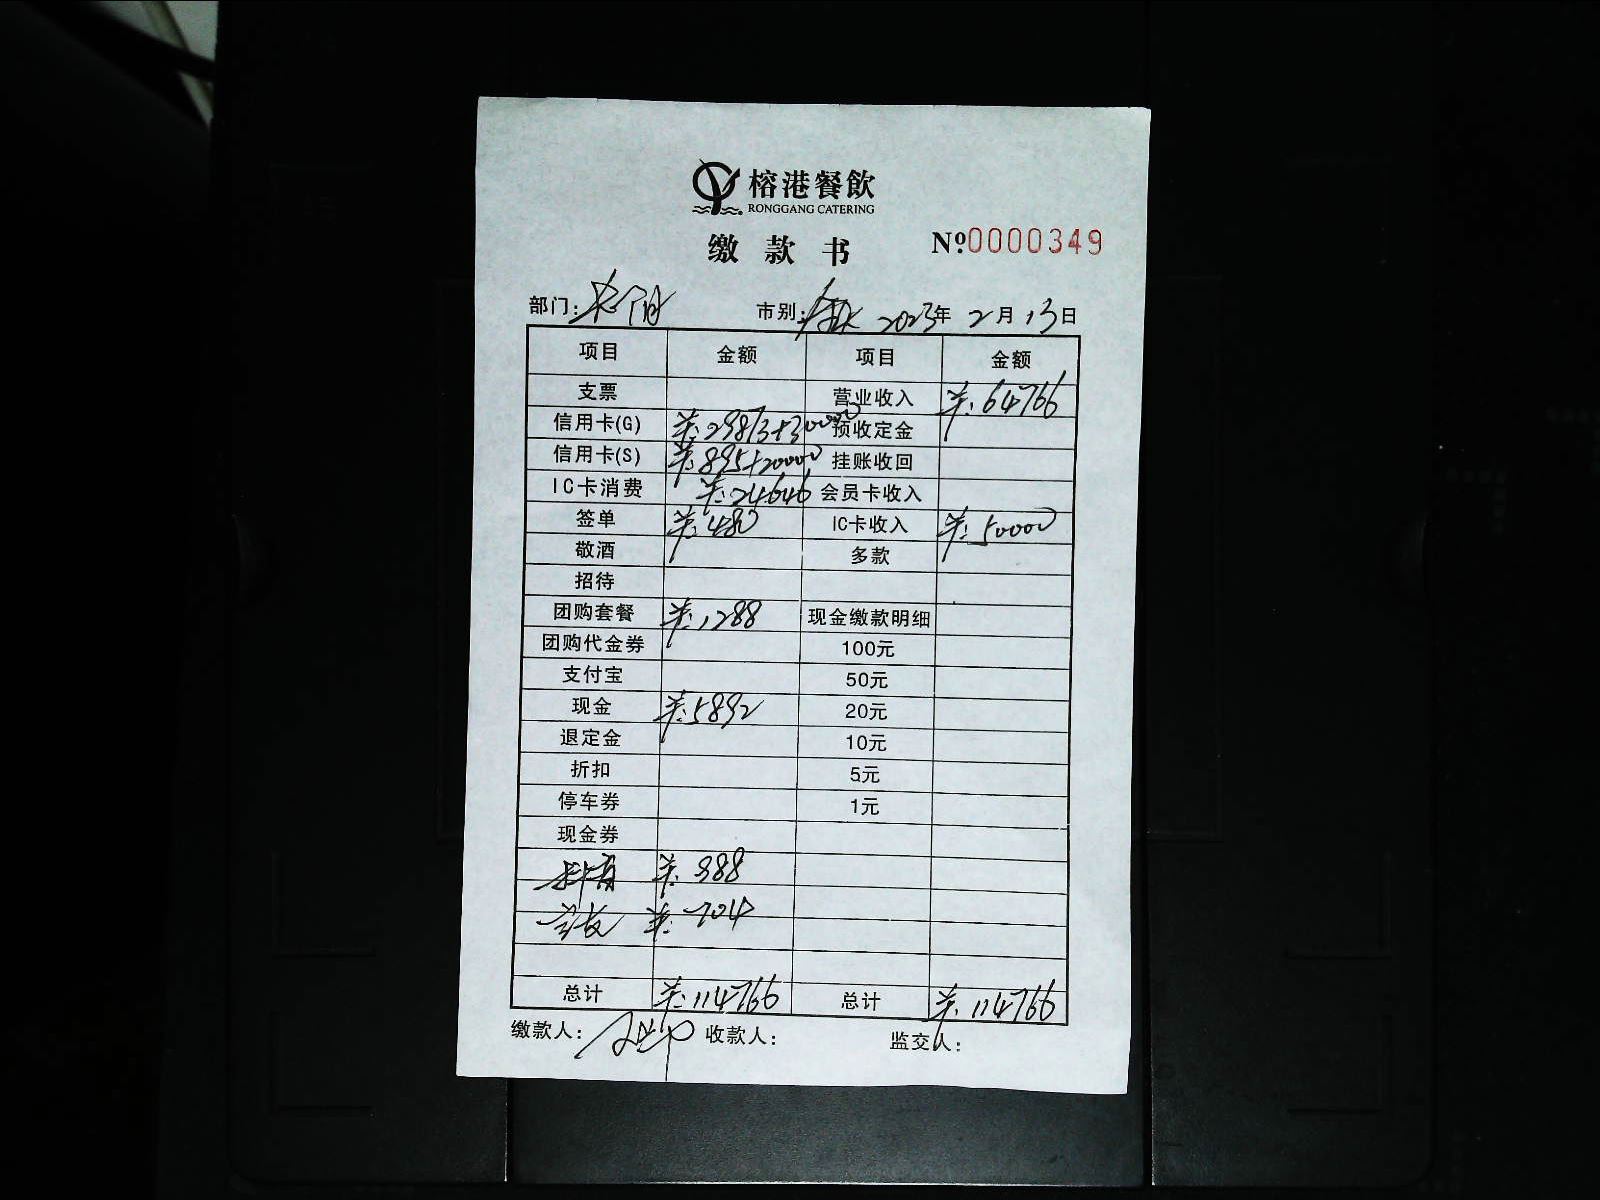 榕港餐飲
RONGGANG CATERING
缴款书
№0000349
部门: 市别: 2023年 2月 13日
项目 金额 项目 金额
支票 营业收入 ¥:64766
信用卡(G) ¥:29873+30000 预收定金
信用卡(S) ¥:895+20000 挂账收回
IC卡消费 ¥:24646 会员卡收入
签单 ¥:480 IC卡收入 ¥:50000
敬酒 多款
招待
团购套餐 ¥:1288 现金缴款明细
团购代金券 100元
支付宝 50元
现金 ¥:5892 20元
退定金 10元
折扣 5元
停车券 1元
现金券
¥:988
¥:704
总计 ¥:114766 总计 ¥:114766
缴款人: 收款人: 监交人: